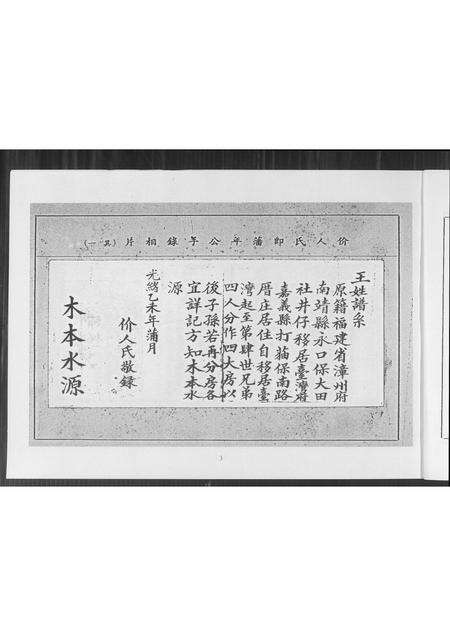 价人氏即蒲年公手錄相片(其一)
王姓譜系
原籍福建省漳州府
南靖縣永口保大田
社井仔移居臺灣府
嘉義縣打猫保南路
厝庄居住自移居臺
灣起至第肆世兄弟
四人分作四大房以
後子孫若再分房各
宜詳記方知木本水
源
光緒乙未年蒲月
价人氏敬錄
木本水源
3